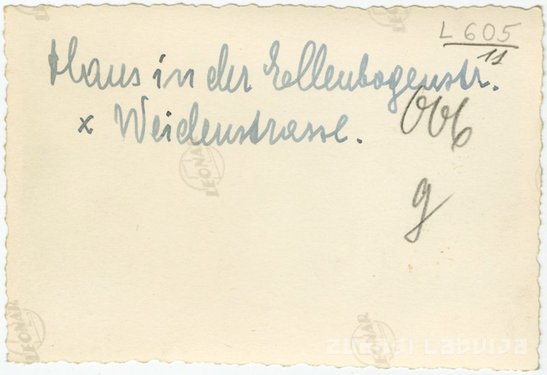 L 605
11
Haus in der Ellenbogenstr.
x Weidenstrasse.
g
LEONAR
LEONAR
LEONAR
LEONAR
LEONAR
ZUDUSĪ LATVIJA